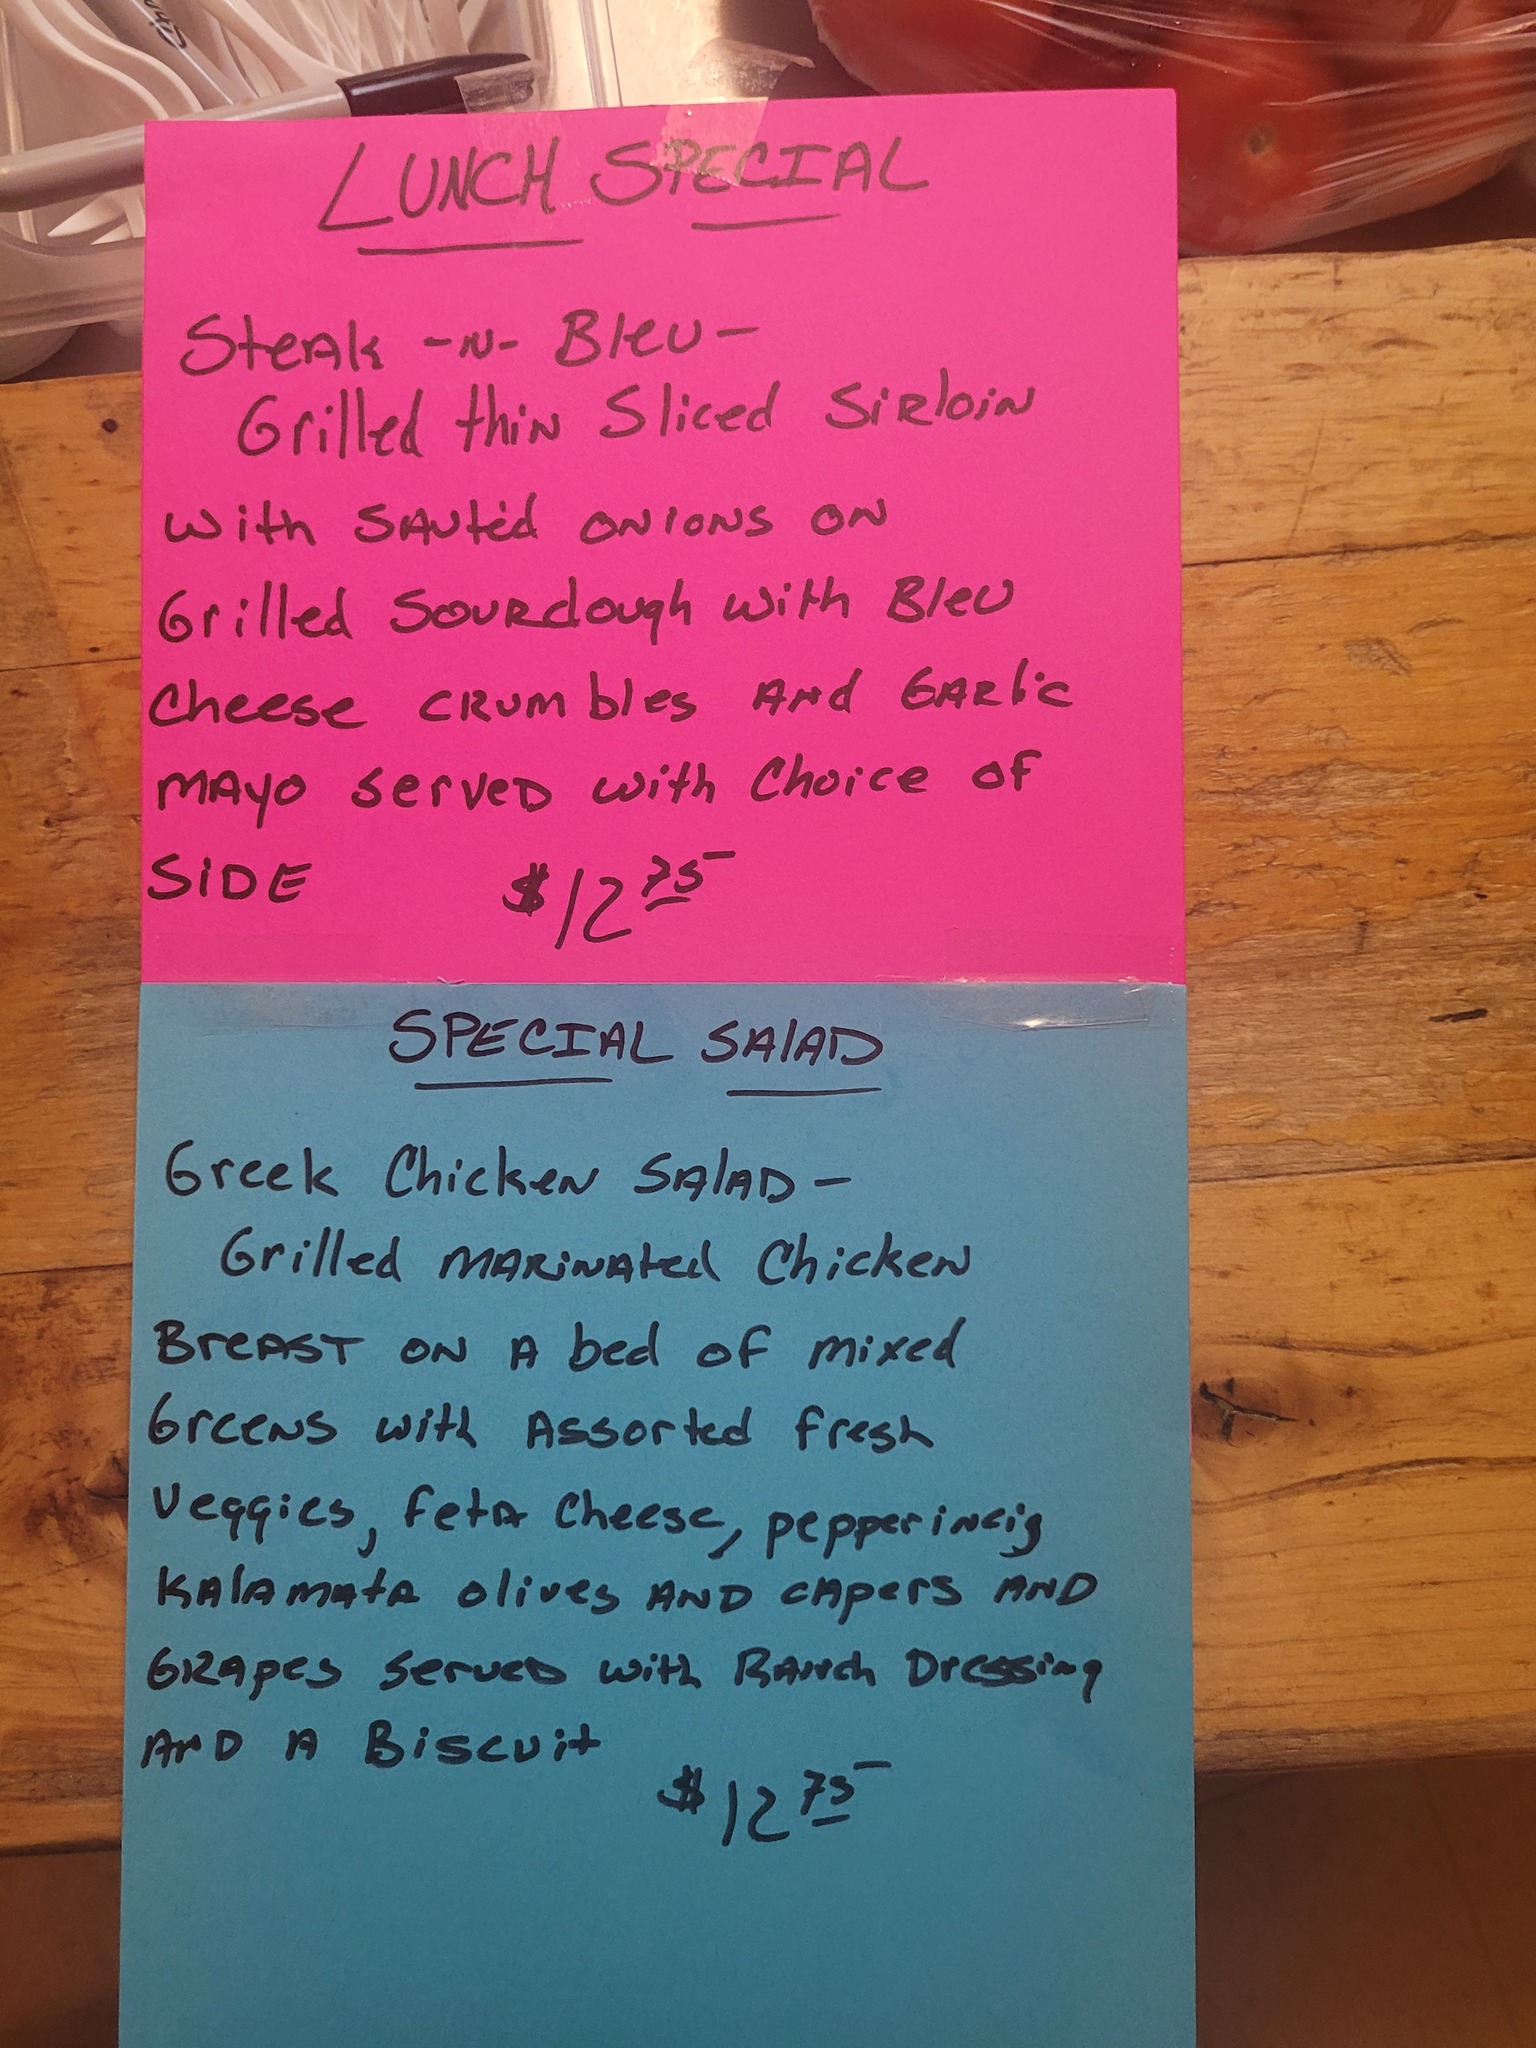 LUNCH SPECIAL
Steak -N- Bleu-
Grilled thin Sliced Sirloin
with Sautéd onions on
Grilled Sourdough with Bleu
Cheese crumbles and Garlic
mayo served with Choice of
SIDE $12.75
SPECIAL SALAD
Greek Chicken SALAD -
Grilled marinated Chicken
Breast on a bed of mixed
Greens with Assorted fresh
Veggies, feta Cheese, pepperincig
Kalamata olives AND capers AND
Grapes served with Ranch Dressing
AND A Biscuit
$12.75